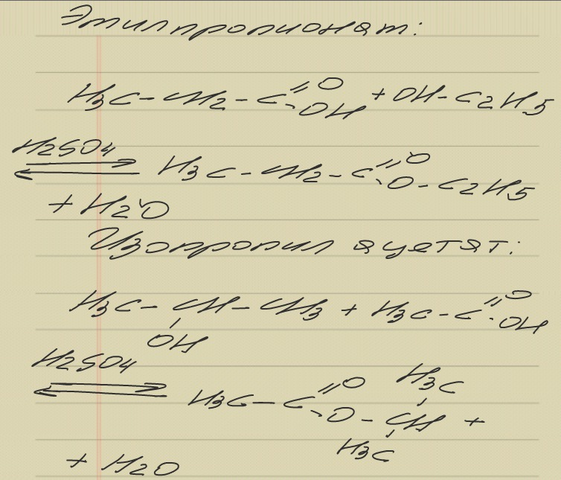 Этилпропионат:
H3C-CH2-C(=O)-OH + OH-C2H5
H2SO4
⇌ H3C-CH2-C(=O)-O-C2H5
+ H2O
Изопропил ацетат:
H3C-CH(OH)-CH3 + H3C-C(=O)-OH
H2SO4
⇌ H3C-C(=O)-O-CH(H3C)(H3C) +
+ H2O